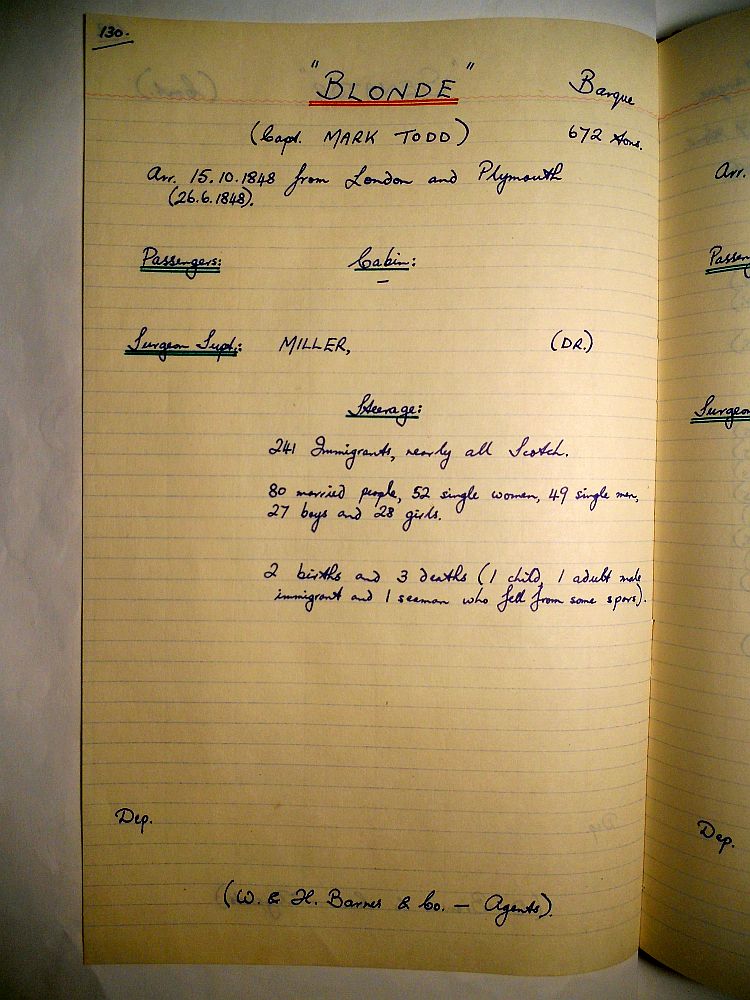 130.
"BLONDE" Barque
(Capt. MARK TODD) 672 tons.
Arr. 15.10.1848 from London and Plymouth
(26.6.1848).
Passengers: Cabin:
–
Surgeon Supt.: MILLER, (DR.)
Steerage:
241 Immigrants, nearly all Scotch.
80 married people, 52 single women, 49 single men,
27 boys and 28 girls.
2 births and 3 deaths (1 child, 1 adult male
immigrant and 1 seaman who fell from some spars).
Dep.
(W. & H. Barnes & Co. — Agents).
Arr.
Passen
Surgeon
Dep.